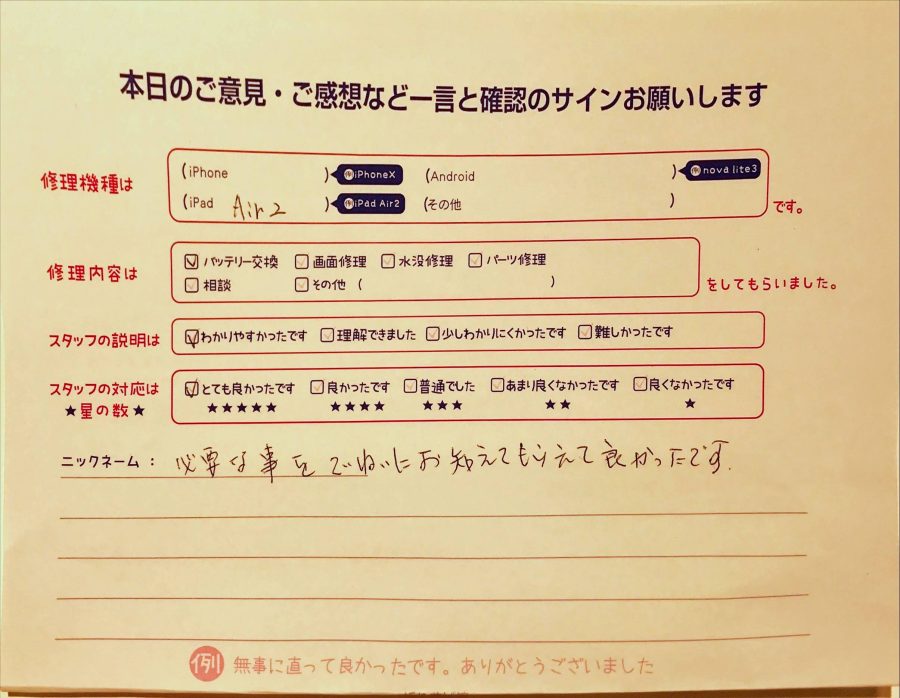 本日のご意見・ご感想など一言と確認のサインお願いします
修理機種は
(iPhone ) 例iPhoneX (Android ) 例nova lite3
(iPad Air2 ) 例iPad Air2 (その他 ) です。
修理内容は
バッテリー交換 画面修理 水没修理 パーツ修理
相談 その他 ( ) をしてもらいました。
スタッフの説明は わかりやすかったです 理解できました 少しわかりにくかったです 難しかったです
スタッフの対応は とても良かったです 良かったです 普通でした あまり良くなかったです 良くなかったです
★星の数★ ★★★★★ ★★★★ ★★★ ★★ ★
ニックネーム: 必要な事をていねいにお知えてもらえて良かったです.
例 無事に直って良かったです。ありがとうございました